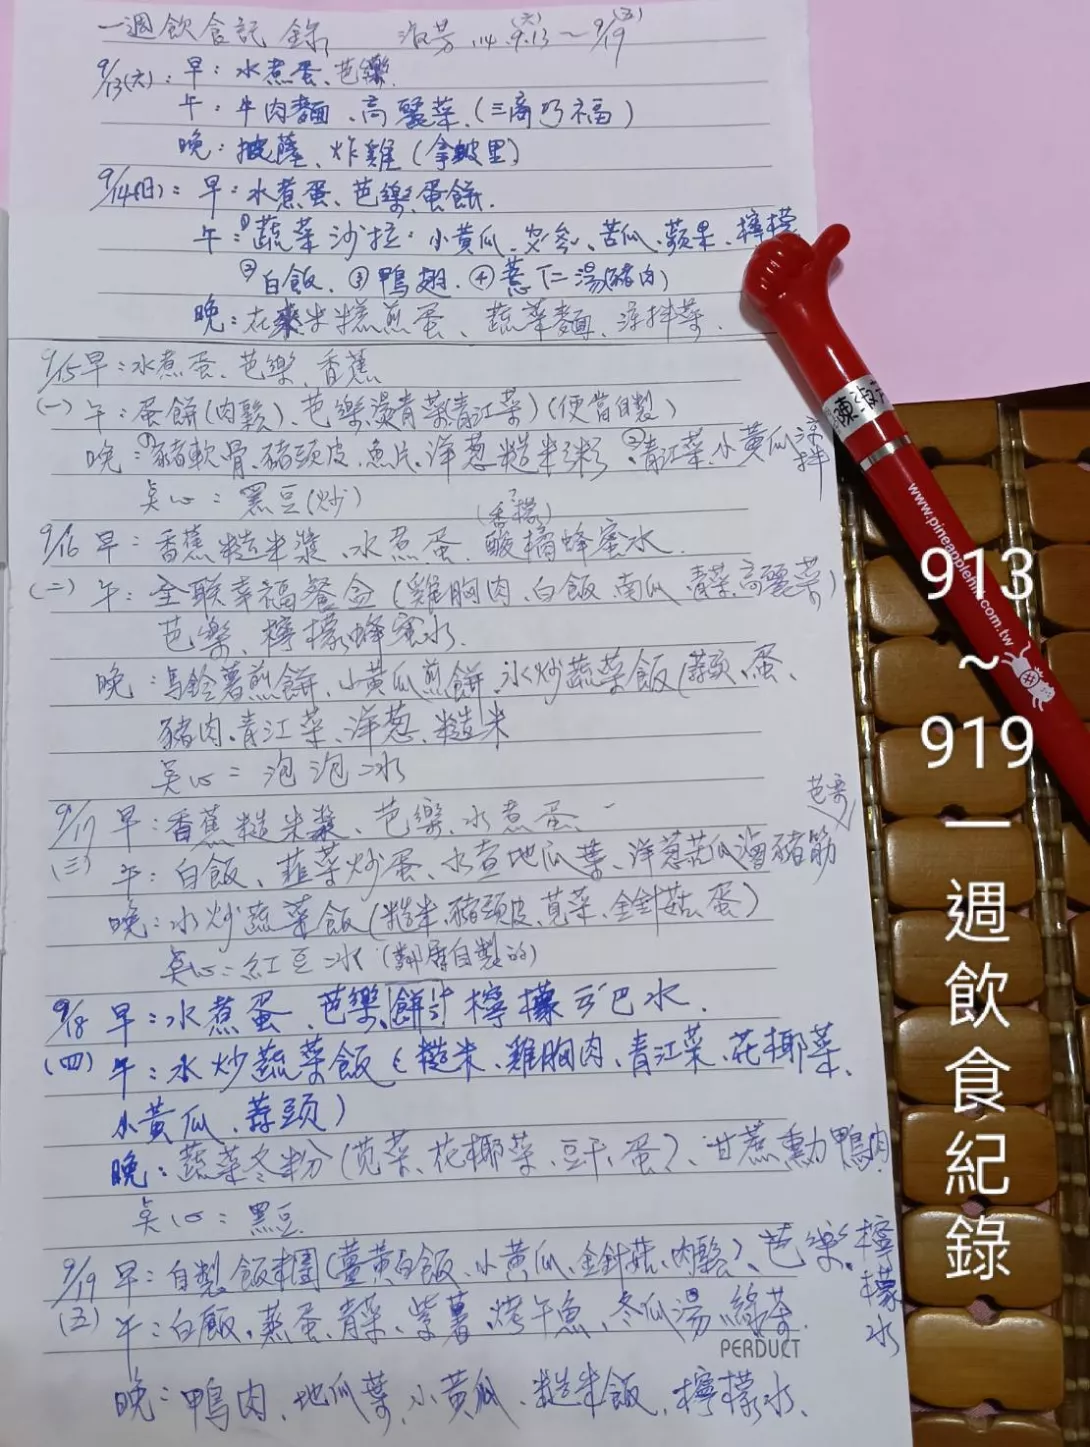 一週飲食記錄 淑芳 114.9.13(六)~9/19(五)
9/13(六):早:水煮蛋、芭樂.
午:牛肉麵、高麗菜.(三商巧福)
晚:披薩、炸雞(拿坡里)
9/14(日):早:水煮蛋、芭樂、蛋餅.
午:①蔬菜沙拉:小黃瓜、苦瓜、蘋果、檸檬
②白飯、③鴨翅.④薏仁湯(豬肉)
晚:花米糕煎蛋、蔬菜麵、涼拌菜.
9/15早:水煮蛋、芭樂、香蕉
(一)午:蛋餅(肉鬆)、芭樂、燙青菜(青江菜)(便當自製)
晚:①豬軟骨、豬頭皮、魚片、洋蔥糙米粥 ②青江菜、小黃瓜涼拌
點心:黑豆(炒)
9/16早:香蕉糙米漿、水煮蛋、酸橘蜂蜜水.
(香檬)
(二)午:全聯幸福餐盒(雞胸肉、白飯、南瓜、青菜、高麗菜)
芭樂、檸檬蜂蜜水.
晚:馬鈴薯煎餅、小黃瓜煎餅、水炒蔬菜飯(蒜頭、蛋、
豬肉、青江菜、洋蔥、糙米
點心:泡泡冰
9/17早:香蕉糙米漿、芭樂、水煮蛋、
芭樂
(三)午:白飯、韮菜炒蛋、水煮地瓜葉、洋蔥花瓜滷豬筋
晚:水炒蔬菜飯(糙米、豬頭皮、莧菜、金針菇、蛋)
點心:紅豆冰(鄰居自製的)
9/18早:水煮蛋、芭樂、餅汁檸檬ㄎ巴水.
(四)午:水炒蔬菜飯(糙米、雞胸肉、青江菜、花椰菜、
小黃瓜、蒜頭)
晚:蔬菜冬粉(莧菜、花椰菜、豆干、蛋)、甘蔗勳鴨肉
點心:黑豆
9/19早:自製飯糰(薑黃白飯、小黃瓜、金針菇、肉鬆)、芭樂.檸檬水
(五)午:白飯、蒸蛋、青菜、紫薯、烤午魚、冬瓜湯、綠茶.
PERDUCT
晚:鴨肉、地瓜葉、小黃瓜、糙米飯、檸檬水、
陳淑芳
www.pineapplehill.com.tw
913
~
919
一週飲食紀錄